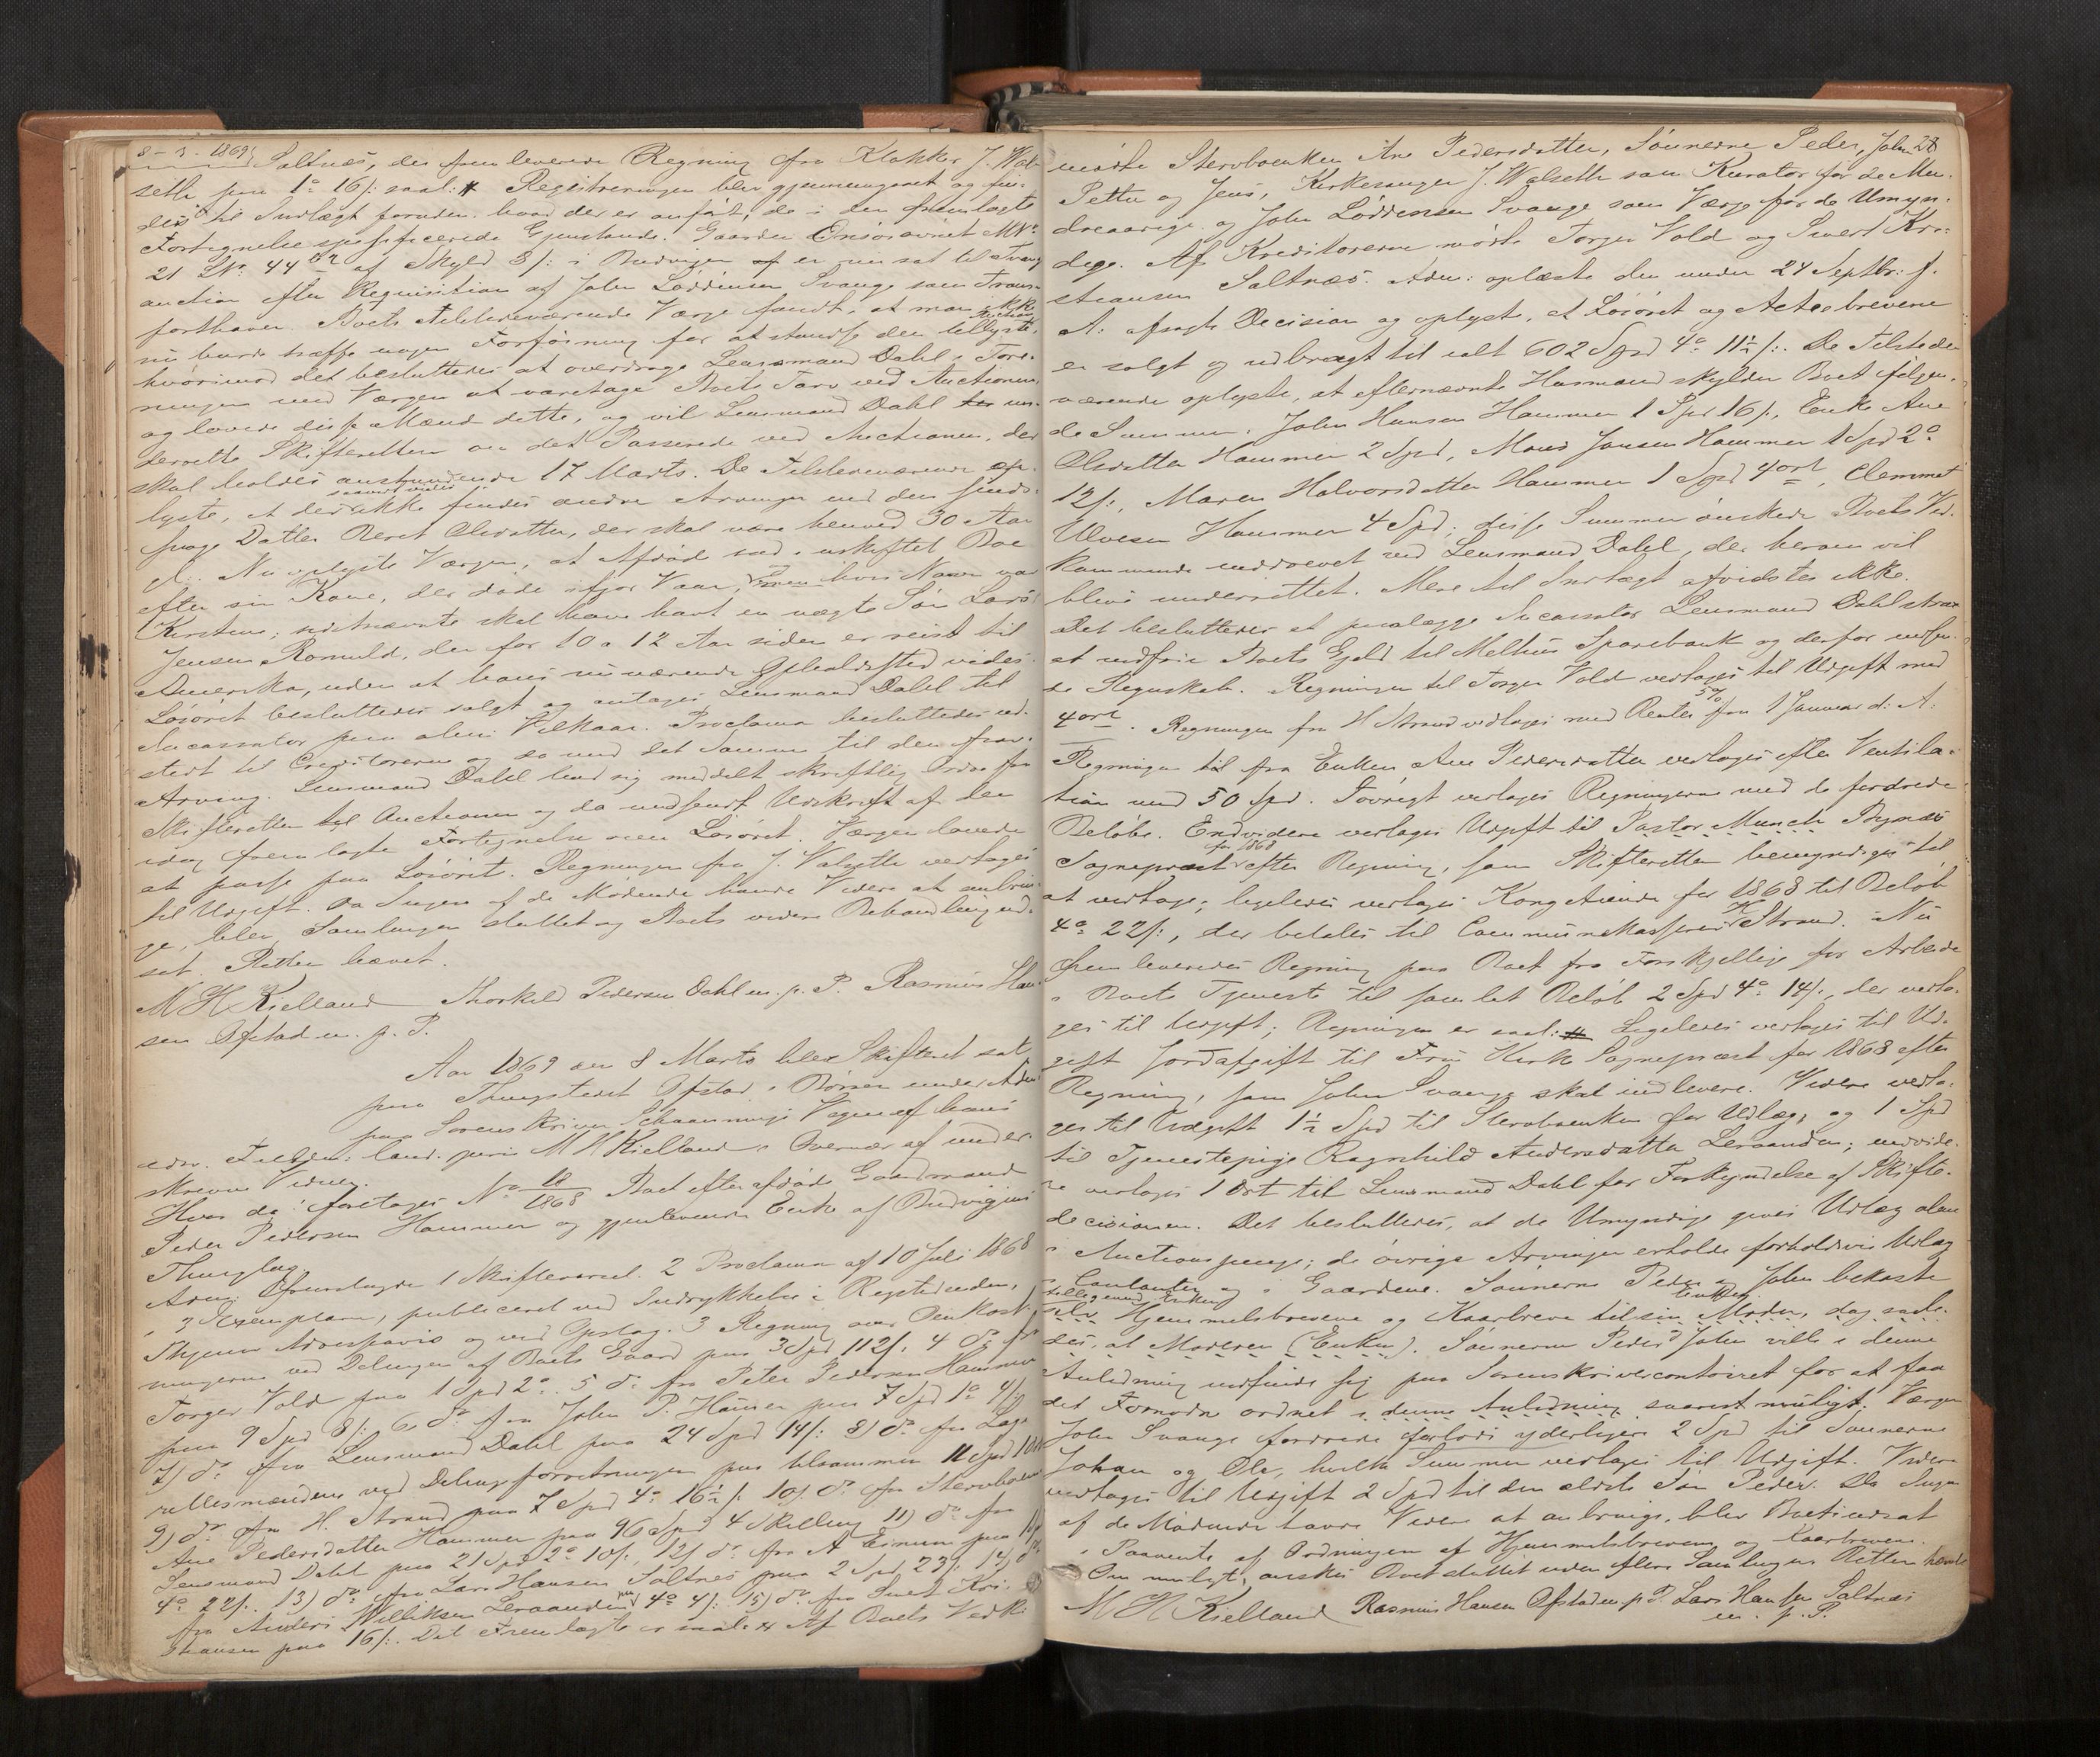 8-3-1869
Saltnæs, der fremleverede Regning fra Klokker J. Wol-
seth paa 1 o 16 /: saal: # Registreringen blev gjennemgaaet og fin-
des til Indtægt foruden hvad der er anført, de i den fremlagte
Fortegnelse specificerede Gjenstande. Gaarden Onsøiaunet M No
21 L No 44 af Skyld 3 /: i Budvigen er nu sat til Tvangs
auction efter Requisition af John Løddensen Svange som Trans-
porthaver. Boets tilstedeværende Værge fandt, at man ikke
nu burde træffe nogen Forføining for at standse den tillyste Auction
hvorimod det besluttedes at overdrage Lensmand Dahl i Fore-
ningen med Værgen at varetage Boets Tarv ved Auctionen
og lovede disse Mænd dette, og vil Lensmand Dahl un-
derrette Skifteretten om det Passerede ved Auctionen, der
skal holdes anstundende 17 Marts. De Tilstedeværende op-
lyste, at der saavidt vides ikke findes andre Arvinger end den
Datter Beret Olsdatter, der skal være henved 30 Aar
gl. Nu oplyste Værgen, at Afdøde sad i uskiftet Bo
efter sin Kone, der døde ifjor Vaar, hvis Navn var
Kirstine; sidstnævnte skal have havt en uægte Søn Lars
Jensen Romuld, der for 10 a 12 Aar siden er reist til
Amerika, uden at hans nuværende Opholdssted vides.
Løsøret besluttedes solgt og antages Lensmand Dahl til
Incassator paa alm: Vilkaar. Proclama besluttedes ud-
stedt til Creditorerne og da med det Samme til den
Arving. Lensmand Dahl lod sig meddelt skriftlig Ordre fra
Skifteretten til Auctionen og da medsendt Udskrift af den
idag fremlagte Fortegnelse over Løsøret. Værgen lovede
at passe paa Løsøret. Regningen fra J. Valseth vedtages
til Udgift. Da Ingen af de Mødende havde Videre at anbrin-
ge, blev Samlingen sluttet og Boets videre Behandling ud-
sat. Retten hævet.
M H Kielland Thorkild Pedersen Dahl m. p. P. Rasmus Han-
sen Ofstad m. p. P.
Aar 1869 den 8 Marts blev Skifteret sat
paa Thingstedet Ofstad i Børsen under
paa Sorenskriver Schaannings Vegne af hans
edsv. Fuldm: cand: juris M H Kielland i Overvær af under-
skrevne Vidner.
Hvor da: foretages No 12/1868 Boet efter afdøde Gaardmand
Peder Pedersen Hammer og gjenlevende Enke af Budvigens
Thinglag.
Adm: fremlagde 1 Skiftevarsel. 2 Proclama af 10 Juli 1868
i 2 Exemplarer, publiceret ved Indrykkelse i Rigstidenden,
Thjems Adresseavis og ved Opslag. 3 Regning over Omkost-
ningerne ved Delingen af Boets Gaard paa 3 Spd 112 /: 4 do fra
Torger Vold paa 1 Spd 2 o. 5 do fra Peter Pedersen Hammer
paa 9 Spd 8 /: 6 do fra John P. Hammer paa 7 Spd 1 o 4 /:
7) do fra Lensmand Dahl paa 24 Spd 14 /: 8) do fra Lag-
rettesmændene ved Delingsforretningen paa tilsammen 11 Spd
9) do fra H. Strand paa 7 Spd 4 o 16½ /: 10) do fra Stervboenken
Ane Pedersdatter Hammer paa 96 Spd 4 Skilling 11) do fra
Lensmand Dahl paa 21 Spd 2 o 10 /:, 12) do fra A Eimum paa
4 o 22 /:. 13) do fra Lars Hansen Saltnes paa 2 Spd 23 /: 14) do
fra Anders Williksen Leraanden paa 4 o 4 /: 15) do fra Sivert Kri-
stiansen paa 16 /:. Det Fremlagte er saal: # Af Boets Vedk:
28
mødte Stervboenken Ane Pedersdatter, Sønnerne Peder, John
Petter og Jens, Kirkesanger J. Walseth som Kurator for de Min-
dreaarige og John Løddensen Svange som Værge for de Umyn-
dige. Af Kreditorerne mødte Torger Vold og Sivert Kri-
stiansen Saltnæs. Adm: oplæste den under 24 Septbr: f.
A: afsagte Decision og oplyste, at Løsøret og Actiebrevene
er solgt og udbragt til ialt 602 Spd 4 o 11½ /:. De Tilstede-
værende oplyste, at efternævnte Husmænd skylder Boet følgen-
de Summer: John Hansen Hammer 1 Spd 16 /:, Enke Ane
Olsdatter Hammer 2 Spd, Mons Jonsen Hammer 1 Spd 2 o
12 /:, Maren Halvorsdatter Hammer 1 Spd 4 ort, Clemmet
Ulvesen Hammer 4 Spd; disse Summer ønskede Boets Ved-
kommende inddrevet ved Lensmand Dahl, der herom vil
blive underrettet. Mere til Indtægt afvidstes ikke.
Det besluttedes at paalægge Incassator Lensmand Dahl strax
at indfrie Boets Gjeld til Melhus Sparebank og derfor
de Regnskab. Regningen til Torger Vold vedtages til Udgift med
4 ort. Regningen fra H Strand vedtages med Renter 5% fra 1 Januar d: A:
Regningen fra Enken Ane Pedersdatter vedtages efter Ventila-
tion med 50 Spd. Iøvrigt vedtages Regningerne med de fordrede
Beløb. Endvidere vedtages Udgift til Pastor Munch Bynæs
Sognepræst for 1868 efter Regning, som Skifteretten bemyndiges til
at vedtage; ligeledes vedtages Kongetiende for 1868 til Beløb
4 o 22 /:, der betales til Communekasserer H Strand. Nu
fremleveredes Regning paa Boet fra Forskjellige for Arbeide
i Boets Tjeneste til samlet Beløb 2 Spd 4 o 14 /:, der vedta-
ges til Udgift; Regningen er saal: # Ligeledes vedtages til Ud-
gift Jordafgift til Frue Kirke Sognepræst for 1868 efter
Regning, som John Svange skal indlevere. Videre vedta-
ges til Udgift 1½ Spd til Stervboenken for Udlæg, og 1 Spd
til Tjenestepige Ragnhild Andersdatter Leraanden; endvide-
re vedtages 1 Ort til Lensmand Dahl for Forkyndelse af Skifte-
decisionen. Det besluttedes, at de Umyndige gives Udlæg alene
i Auctionspenge; de øvrige Arvinger erholde forholdsvis Udlæg
i Contanter og i Gaardene. Sønnerne Peder og John bekoste
selv Hjemmelsbrevene og Kaarbreve til sin Moder, dog saale-
des, at Moderen (Enken). Sønnerne Peder og John ville i denne
Anledning indfinde sig paa Sorenskrivercontoiret for at faa
det Fornødne ordnet i denne Anledning snarest muligt. Værgen
John Svange fordrede forlods yderligere 2 Spd til Sønnerne
Johan og Ole, hvilke Summer vedtages til Udgift. Videre
vedtages til Udgift 2 Spd til den ældste Søn Peder. Da Ingen
af de Mødende havde Videre at anbringe, blev Boet udsat
i Paavente af Ordningen af Hjemmelsbrevene og Kaarbrevene.
Om muligt, ønskes Boet sluttet uden flere Samlinger. Retten hævet
M H Kielland Rasmus Hansen Ofstad m. p. P. Lars Hansen Saltnæs
m. p. P.